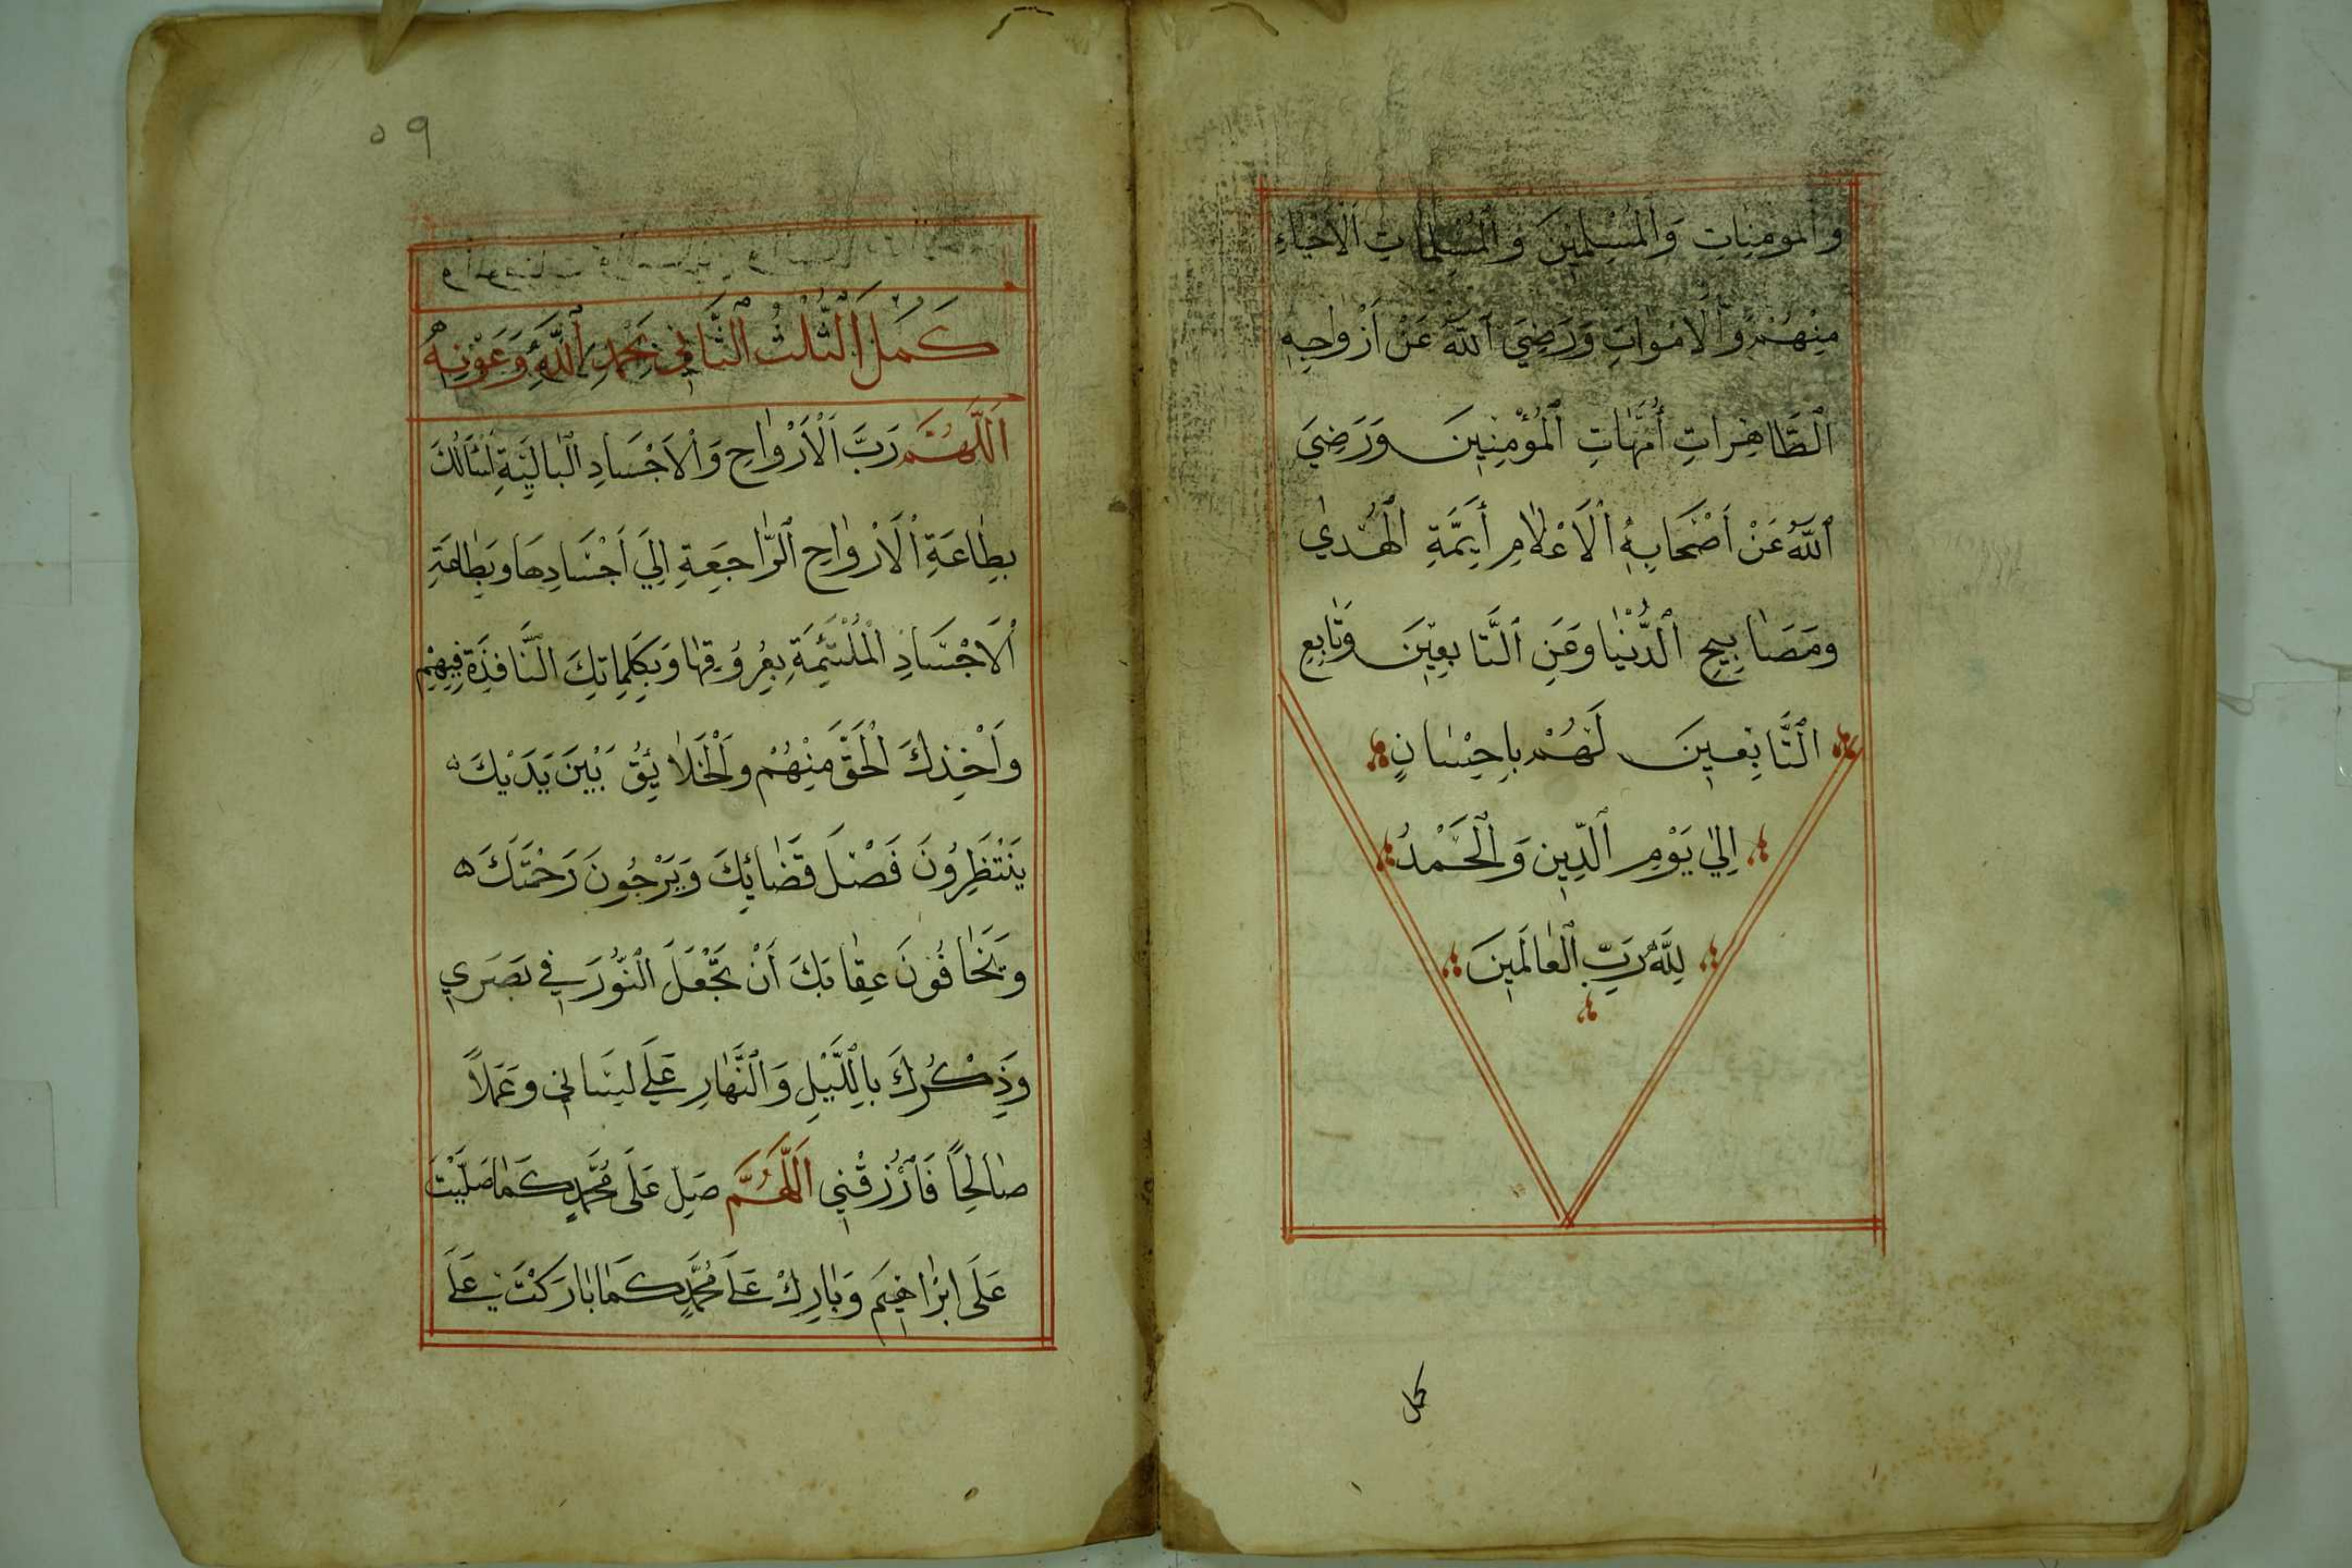 وَالْمُومِنِاتِ وَالْمُسْلِمِينَ وَالْمُسْلِمَاتِ الْأَحْيَاءِ
مِنْهُمْ وَالْأَمْوَاتِ وَرَضِيَ اللَّهُ عَنْ أَزْوَاجِهِ
الطَّاهِرَاتِ أُمَّهَاتِ الْمُؤْمِنِينَ وَرَضِيَ
اللَّهُ عَنْ أَصْحَابِهِ الْأَعْلَامِ أَيِمَّةِ الْهُدَىٰ
وَمَصَابِيحِ الدُّنْيَا وَعَنِ التَّابِعِينَ وَتَابِعِ
التَّابِعِينَ لَهُمْ بِإِحْسَانٍ
إِلَىٰ يَوْمِ الدِّينِ وَالْحَمْدُ
لِلَّهِ رَبِّ الْعَالَمِينَ
كمل
٥٩
كَمُلَ الثُّلُثُ الثَّانِي بِحَمْدِ اللَّهِ وَعَوْنِهِ
اَللَّهُمَّ رَبَّ الْأَرْوَاحِ وَالْأَجْسَادِ الْبَالِيَةِ أَسْأَلُكَ
بِطَاعَةِ الْأَرْوَاحِ الرَّاجِعَةِ إِلَىٰ أَجْسَادِهَا وَبِطَاعَةِ
الْأَجْسَادِ الْمُلْتَئِمَةِ بِعُرُوقِهَا وَبِكَلِمَاتِكَ النَّافِذَةِ فِيهِمْ
وَأَخْذِكَ الْحَقَّ مِنْهُمْ وَالْخَلَائِقُ بَيْنَ يَدَيْكَ
يَنْتَظِرُونَ فَصْلَ قَضَائِكَ وَيَرْجُونَ رَحْمَتَكَ
وَيَخَافُونَ عِقَابَكَ أَنْ تَجْعَلَ النُّورَ فِي بَصَرِي
وَذِكْرَكَ بِاللَّيْلِ وَالنَّهَارِ عَلَىٰ لِسَانِي وَعَمَلًا
صَالِحًا فَارْزُقْنِي اَللَّهُمَّ صَلِّ عَلَىٰ مُحَمَّدٍ كَمَا صَلَّيْتَ
عَلَىٰ إِبْرَاهِيمَ وَبَارِكْ عَلَىٰ مُحَمَّدٍ كَمَا بَارَكْتَ عَلَىٰ